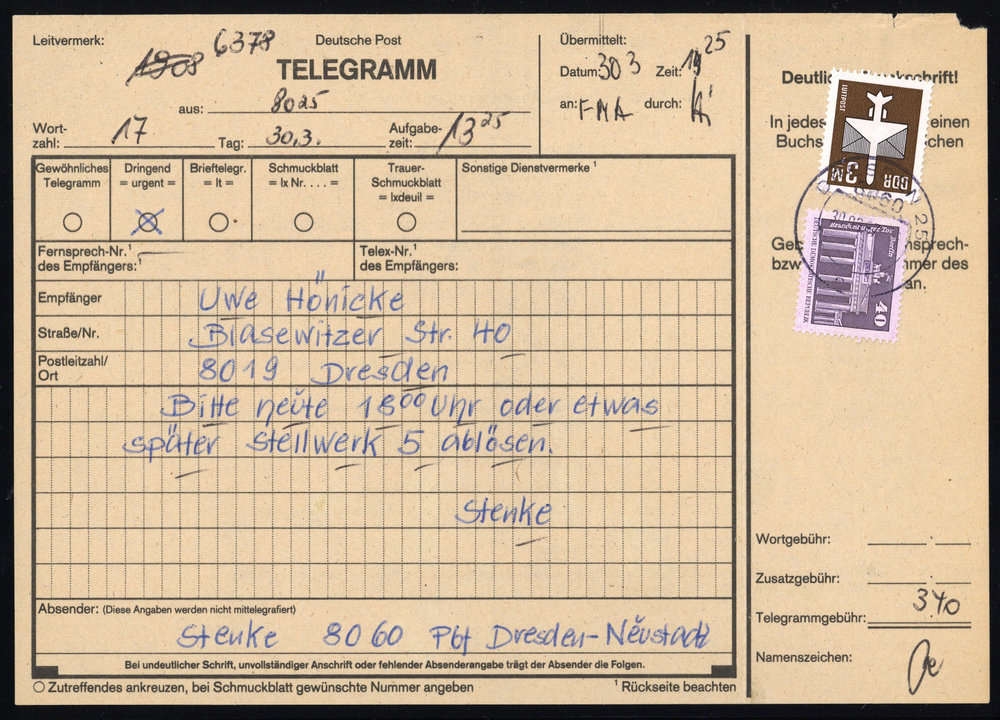 Leitvermerk:
1908 6378
Deutsche Post
TELEGRAMM
aus: 8025
Wort-
zahl: 17
Tag: 30.3.
Aufgabe-
zeit: 13 25
Übermittelt:
Datum: 30 3 Zeit: 25
an: FMA durch:
Gewöhnliches
Telegramm
Dringend
= urgent =
Brieftelegr.
= lt =
Schmuckblatt
= lx Nr. . . . =
Trauer-
Schmuckblatt
= lxdeuil =
Sonstige Dienstvermerke 1
Fernsprech-Nr.1
des Empfängers:
Telex-Nr.1
des Empfängers:
Empfänger Uwe Hönicke
Straße/Nr. Blasewitzer Str. 40
Postleitzahl/
Ort 8019 Dresden
Bitte heute 18 00 Uhr oder etwas
später Stellwerk 5 ablösen.
Stenke
Absender: (Diese Angaben werden nicht mittelegrafiert)
Stenke 8060 Pbf Dresden-Neustadt
Bei undeutlicher Schrift, unvollständiger Anschrift oder fehlender Absenderangabe trägt der Absender die Folgen.
Zutreffendes ankreuzen, bei Schmuckblatt gewünschte Nummer angeben
1 Rückseite beachten
In jedes einen
Buchs
bzw mer des
an.
LUFTPOST
DDR 3M
8060
25
DEUTSCHE DEMOKRATISCHE REPUBLIK
Berlin
40
Wortgebühr:
Zusatzgebühr:
Telegrammgebühr: 340
Namenszeichen: